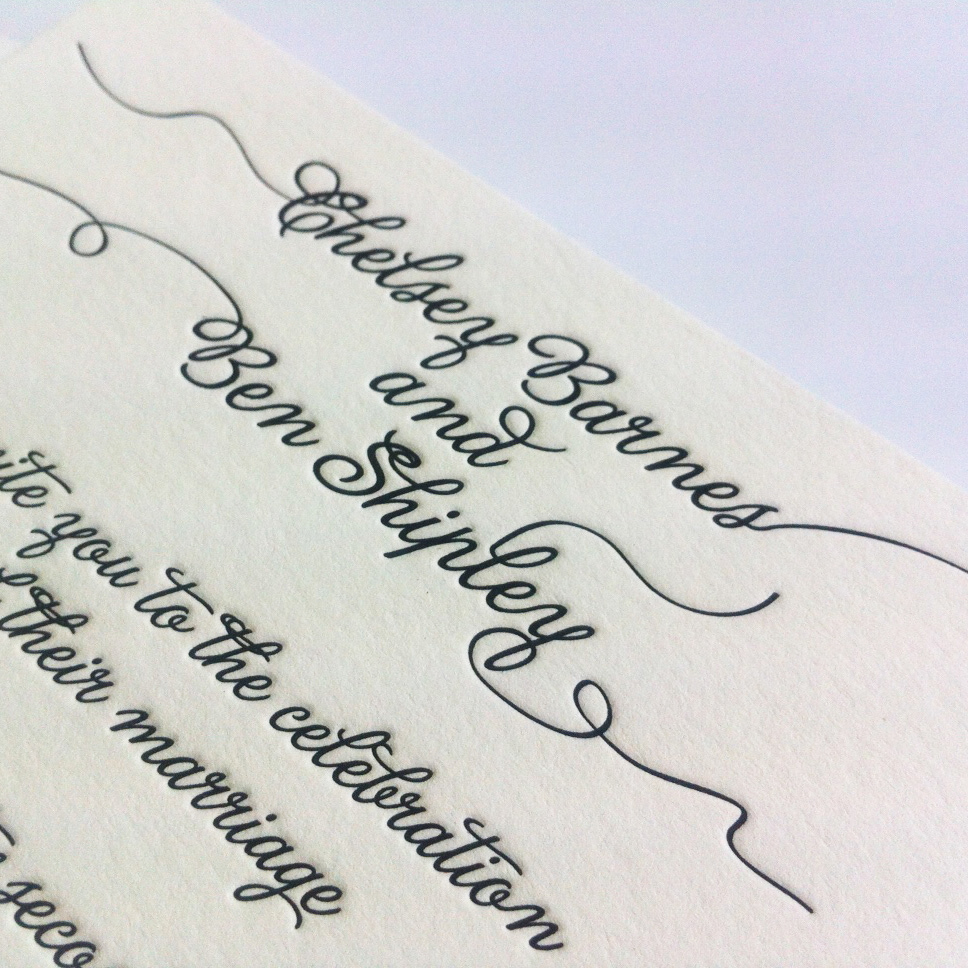 Chelsey Barnes
and
Ben Shipley
you to the celebration
their marriage